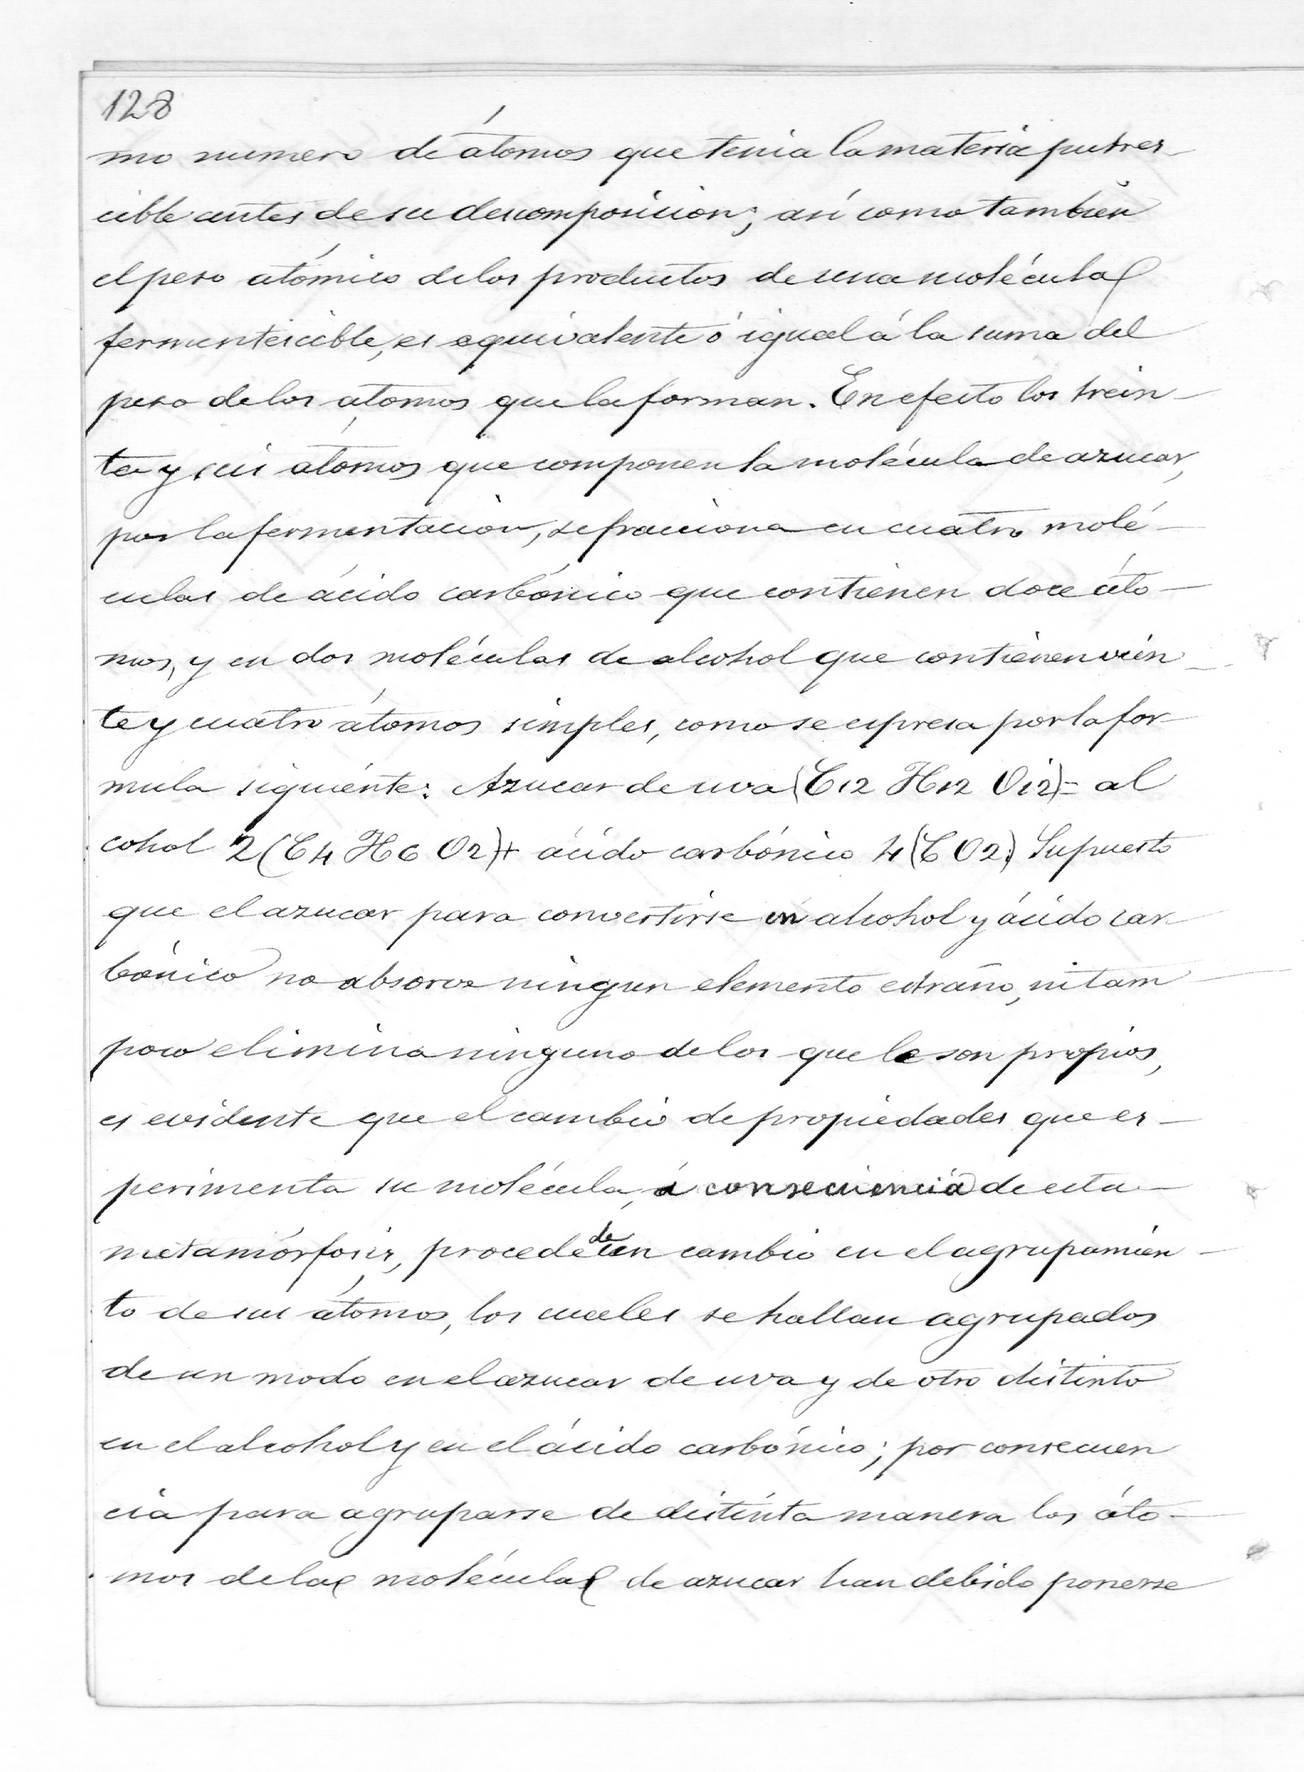 128
mo numero de átomos que tenia la materia putres-
cible antes de su descomposicion; así como tambien
el peso atómico de los productos de una molécula
fermentescible, es equivalente ó igual á la suma del
peso de los átomos que la forman. En efecto los trein-
ta y seis átomos que componen la molécula de azucar,
por la fermentacion, se fracciona en cuatro molé-
culas de ácido carbónico que contienen doce áto-
mos, y en dos moléculas de alcohol que contienen vein-
te y cuatro átomos simples, como se espresa por la for-
mula siguiente: Azucar de uva (C12 H12 O12) = al
cohol 2 (C4 H6 O2) + ácido carbónico 4 (C O2) Supuesto
que el azucar para convertirse en alcohol y ácido car-
bónico no absorve ningun elemento estraño, ni tam-
poco elimina ninguno de los que le son propios,
es evidente que el cambio de propiedades que es-
perimenta su molécula, á consecuencia de esta
metamórfosis, procede de un cambio en el agrupamien-
to de sus átomos, los cuales se hallan agrupados
de un modo en el azucar de uva y de otro distinto
en el alcohol y en el ácido carbónico; por consecuen
cia para agruparse de distinta manera los áto-
mos de la molécula de azucar han debido ponerse